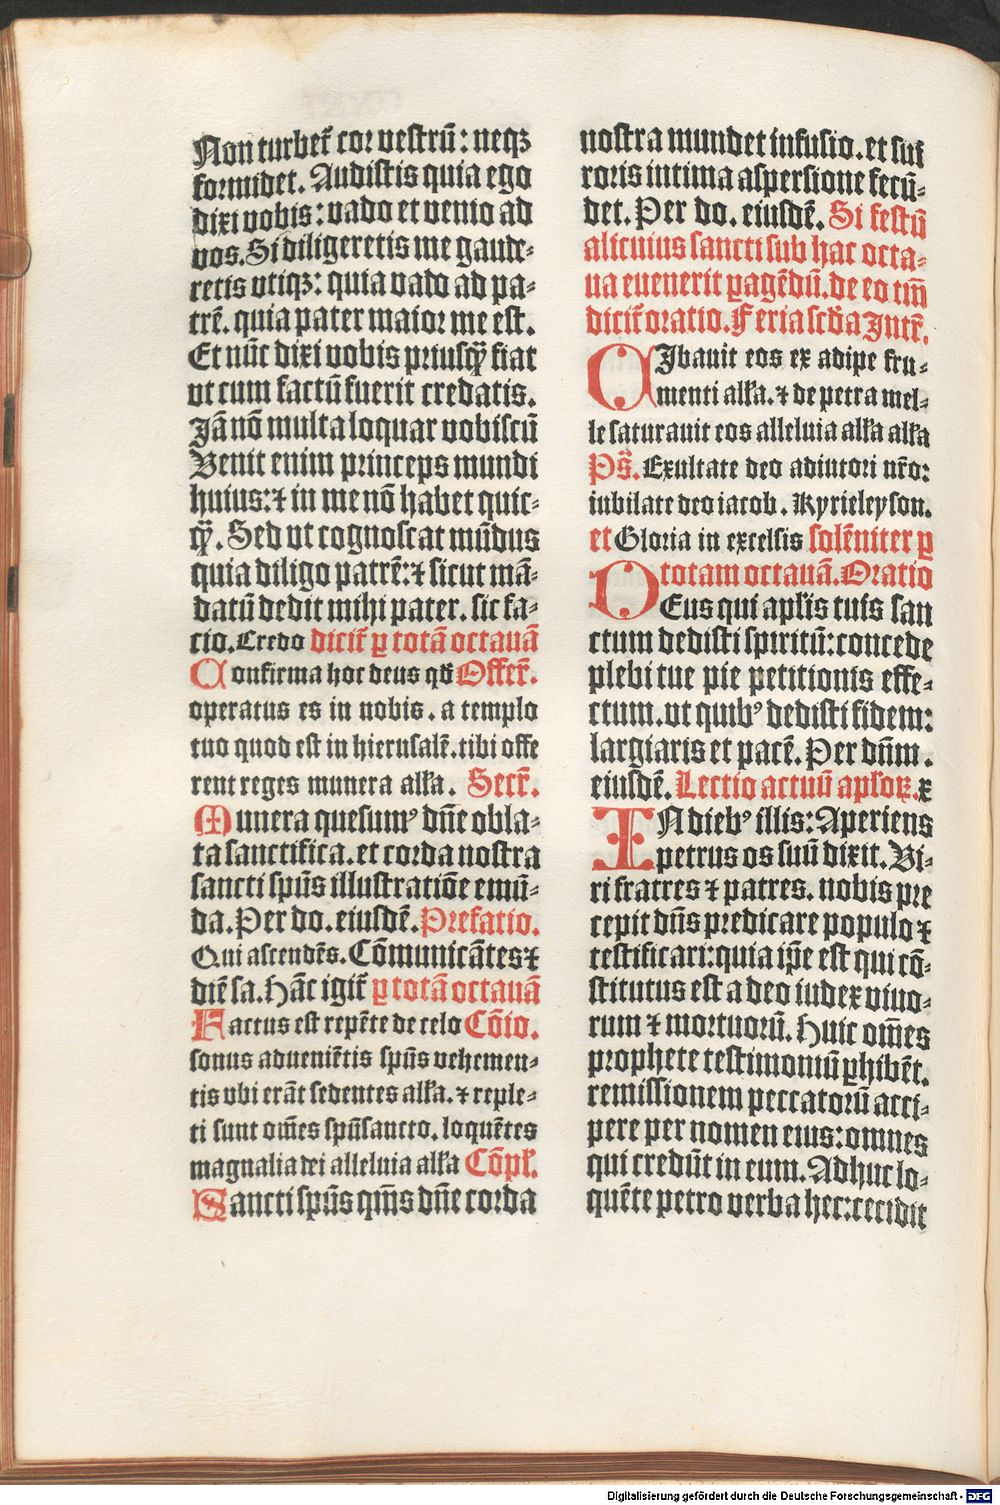 Non turbet᷑ cor vestrū: neqꝫ
formidet. Audistis quia ego
dixi vobis: vado et venio ad
vos. Si diligeretis me gaude-
retis vtiqꝫ: quia vado ad pa-
trē. quia pater maior me est.
Et nūc dixi vobis priusqꝫ̄ fiat
vt cum factū fuerit credatis.
Jā nō multa loquar vobiscū
Venit enim princeps mundi
huius: ⁊ in me nō habet quic-
qꝫ̄. Sed vt cognoscat mūdus
quia diligo patrē: ⁊ sicut mā-
datū dedit mihi pater. sic fa-
cio. Credo dicit᷑ ꝑ totā octauā
Confirma hoc deus qd̄ Offer̄.
operatus es in nobis. a templo
tuo quod est in hierusalē. tibi offe
rent reges munera all̄a. Secr̄.
Munera quesumꝰ dn̄e obla-
ta sanctifica. et corda nostra
sancti spūs illustratiōe emū-
da. Per do. eiusdē. Prefatio.
Qui ascendēs. Cōmunicātes ⁊
diē sa. Hāc igit᷑ ꝑ totā octauā
Factus est repēte de celo Cōio.
sonus adueniētis spūs vehemen-
tis vbi erāt sedentes all̄a. ⁊ reple-
ti sunt om̄es spū sancto. loquētes
magnalia dei alleluia all̄a Cōpl̄.
Sancti spūs qm̄s dn̄e corda
nostra mundet infusio. et sui
roris intima aspersione fecū-
det. Per do. eiusdē. Si festū
alicuius sancti sub hac octa-
ua euenerit ꝑagēdū. de eo tm̄
dicit᷑ oratio. Feria scd̄a Intr̄.
CJbauit eos ex adipe fru-
menti all̄a. ⁊ de petra mel-
le saturauit eos alleluia all̄a all̄a
Ps̄. Exultate deo adiutori nr̄o:
iubilate deo iacob. Kyrieleyson.
et Gloria in excelsis solēniter ꝑ
totam octauā. Oratio
DEus qui apl̄is tuis san
ctum dedisti spiritū: concede
plebi tue pie petitionis effe-
ctum. vt quibꝰ dedisti fidem:
largiaris et pacē. Per dn̄m.
eiusdē. Lectio actuū apl̄oꝝ. x
IN diebꝰ illis: Aperiens
petrus os suū dixit. Vi-
ri fratres ⁊ patres. nobis pre
cepit dn̄s predicare populo ⁊
testificari: quia ip̄e est qui cō-
stitutus est a deo iudex viuo-
rum ⁊ mortuorū. Huic om̄es
prophete testimoniū ꝑhibēt.
remissionem peccatorū acci-
pere per nomen eius: omnes
qui credūt in eum. Adhuc lo-
quēte petro verba hec: cecidit
Digitalisierung gefördert durch die Deutsche Forschungsgemeinschaft - DFG